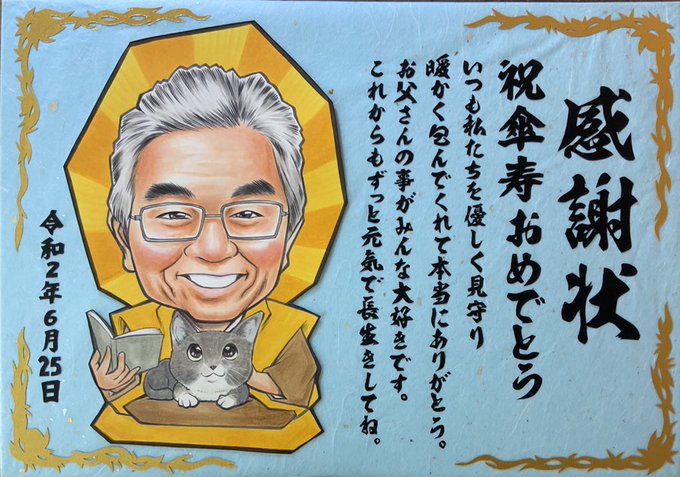 感謝状
祝傘寿おめでとう
いつも私たちを優しく見守り
暖かく包んでくれて本当にありがとう。
お父さんの事がみんな大好きです。
これからもずっと元気で長生きしてね。
令和2年6月25日